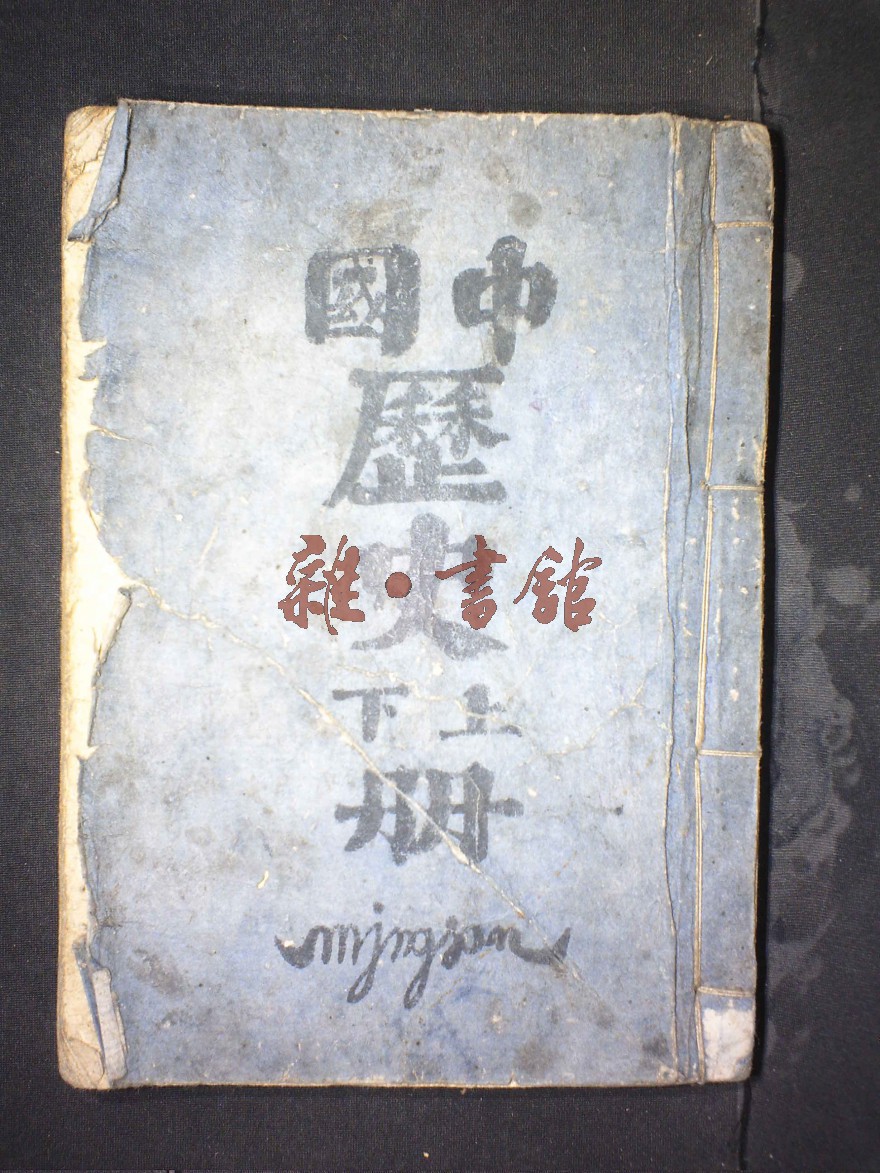 中國
歷
史
雜·書館
上下
册